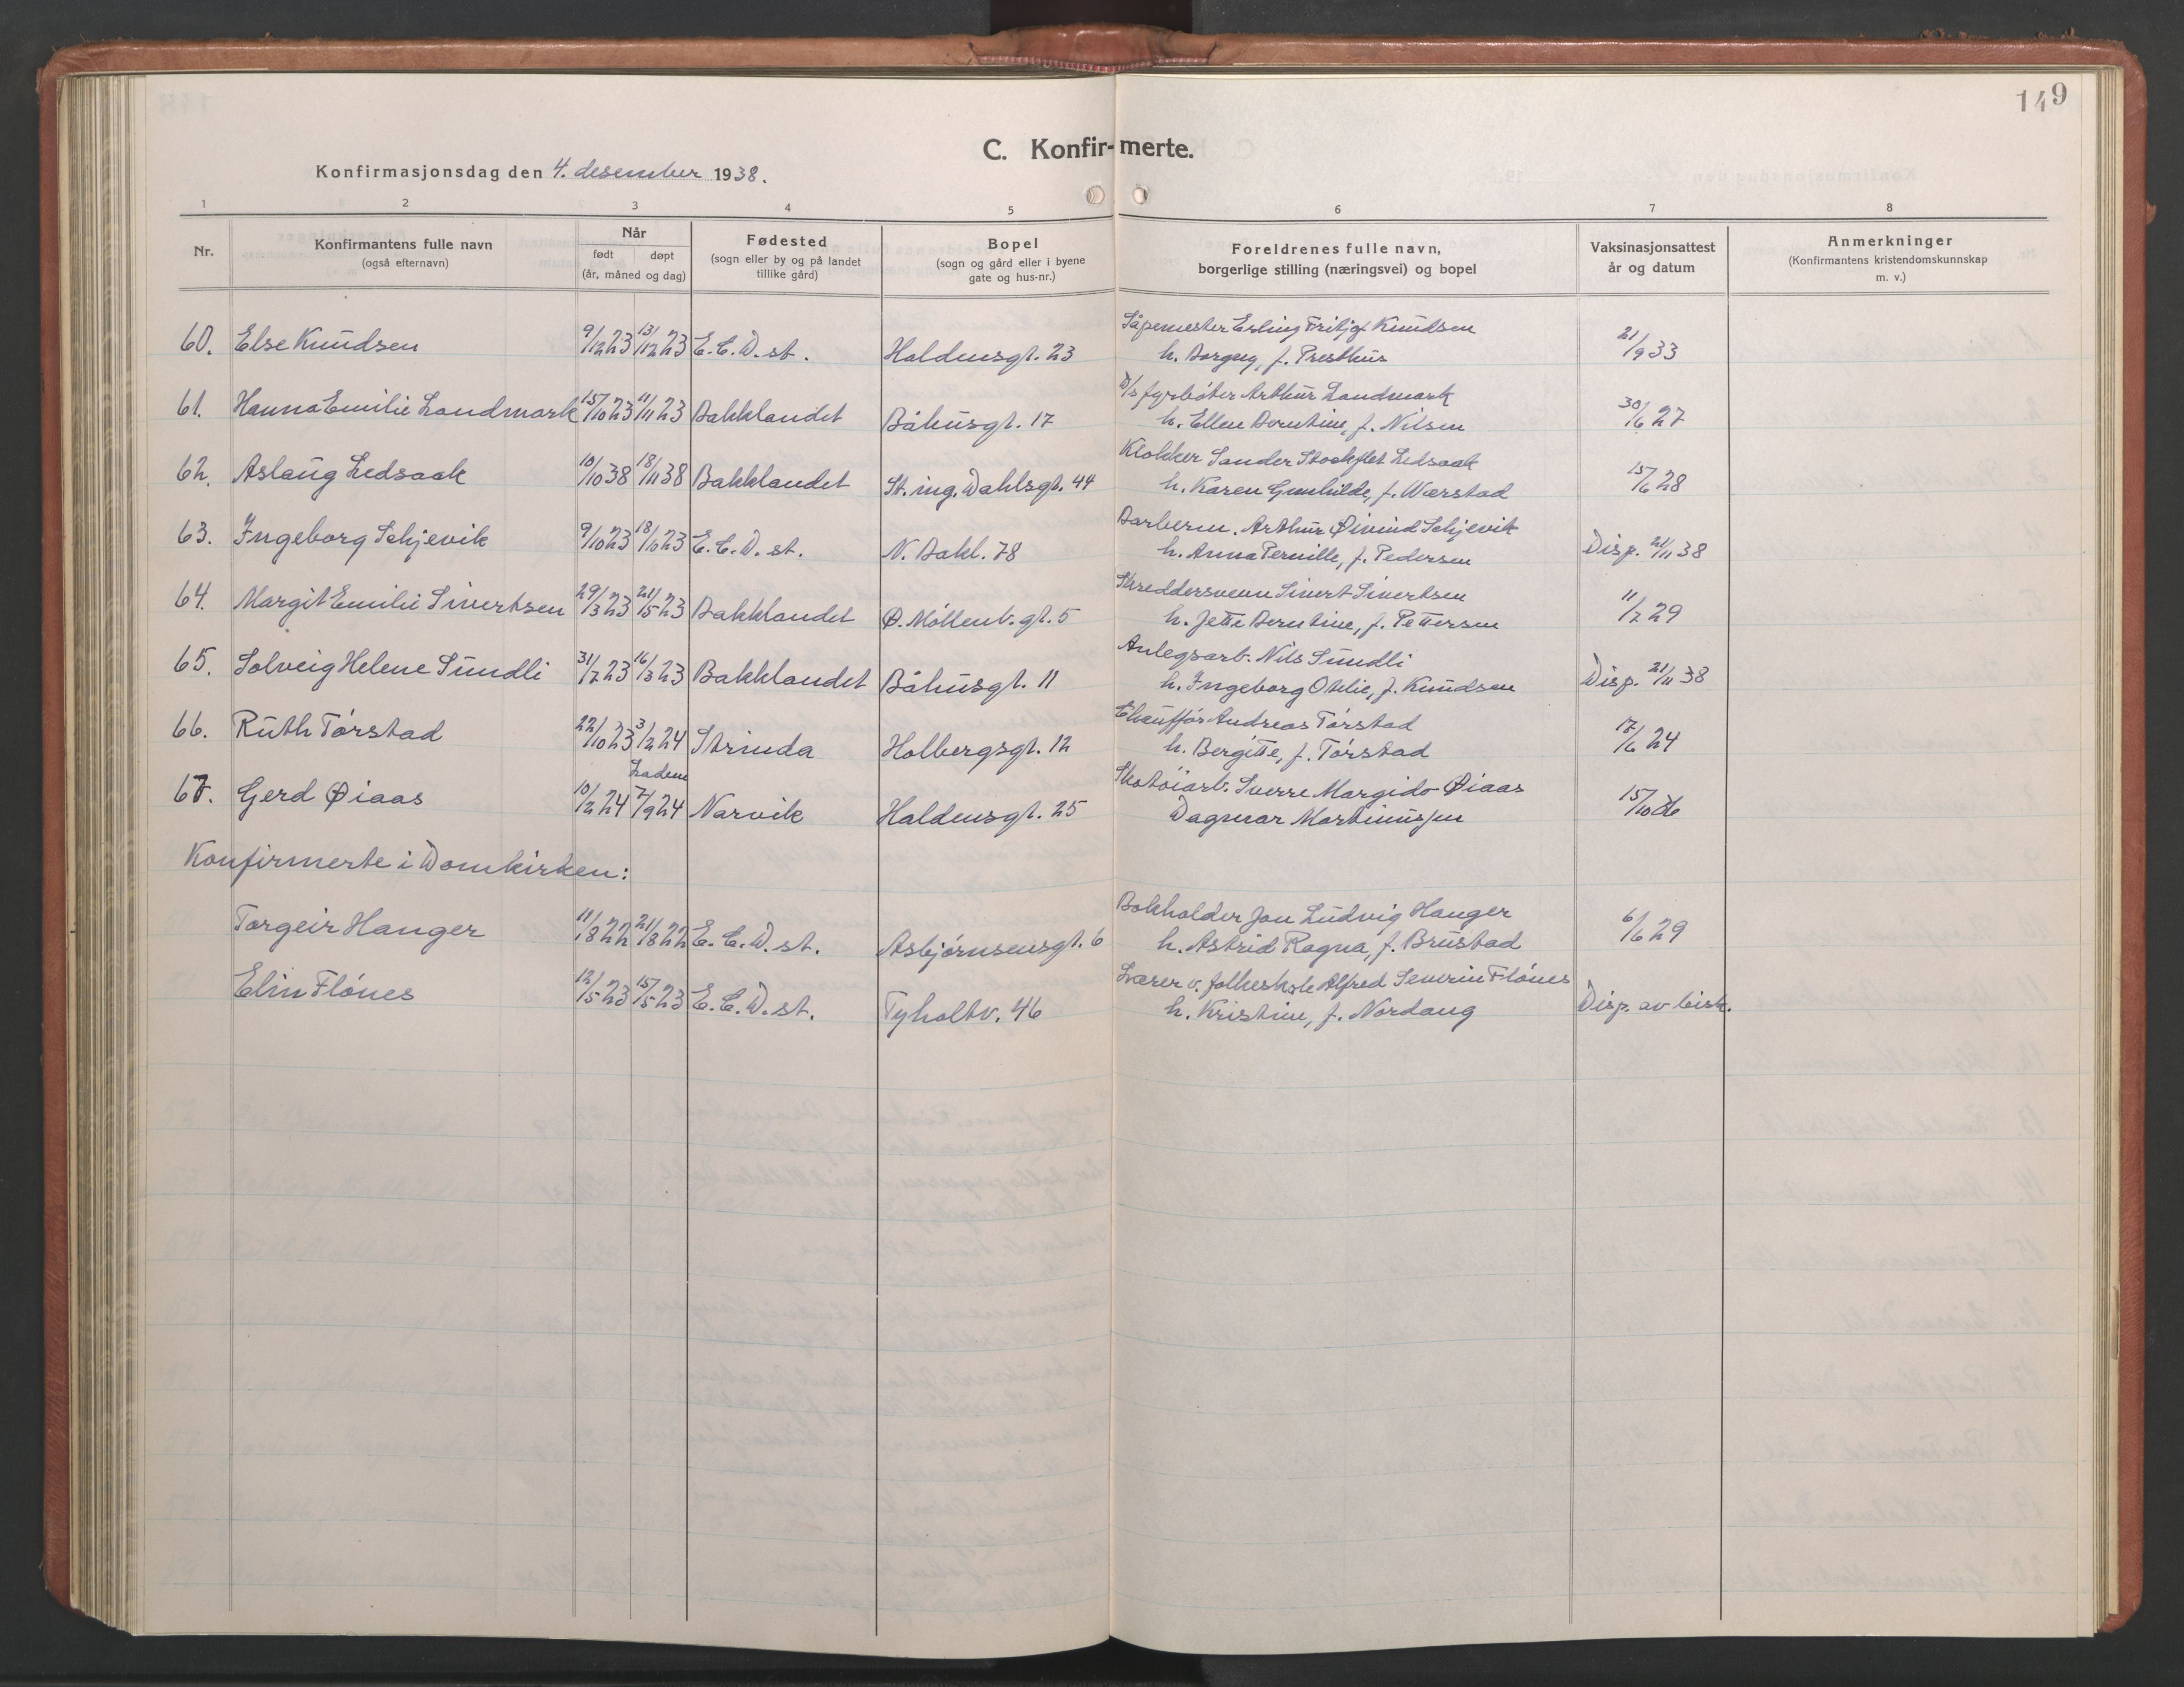 149
C. Konfir-merte.
Konfirmasjonsdag den 4. desember 1938.
1 2 3 4 5 6 7 8
Nr. Konfirmantens fulle navn (også efternavn) Når født døpt (år, måned og dag) Fødested (sogn eller by og på landet tillike gård) Bopel (sogn og gård eller i byene gate og hus-nr.) Foreldrenes fulle navn, borgerlige stilling (næringsvei) og bopel Vaksinasjonsattest år og datum Anmerkninger (Konfirmantens kristendomskunnskap m. v.)
60. Else Knudsen 9/12 23 13/12 23 E.C.D. st. Haldensgt. 23 Såpemester Erling Fritjof Knudsen 21/9 33
h. Borgny, f. Presthus
61. Hanna Emilie Landmark 15/10 23 11/11 23 Bakklandet Båhusgt. 17 D/s fyrbøter Arthur Landmark 30/6 27
h. Ellen Berntine, f. Nilsen
62. Aslaug Ledsaak 10/10 38 18/11 38 Bakklandet St. ing. Dahlsgt. 44 Klokker Sander Stockflet Ledsaak 15/6 28
h. Karen Gunhilde, f. Wærstad
63. Ingeborg Schjevik 9/10 23 18/10 23 E.C.D. st. N. Bakl. 78 Barberm. Arthur Øivind Schjevik Disp. 21/11 38
h. Anna Pernille, f. Pedersen
64. Margit Emilie Sivertsen 29/3 23 21/5 23 Bakklandet Ø. Møllenb. gt. 5 Skreddersvenn Sivert Sivertsen 11/7 29
h. Jette Berntine, f. Pettersen
65. Solveig Helene Sundli 31/7 23 16/3 23 Bakklandet Båhusgt. 11 Anlegsarb. Nils Sundli Disp. 21/11 38
h. Ingeborg Othlie, f. Knudsen
66. Ruth Tørstad 22/10 23 3/2 24 Strinda Holbergsgt. 12 Chauffør Andreas Tørstad 17/6 24
h. Bergitte, f. Tørstad
Lademo
67. Gerd Øiaas 10/2 24 7/9 24 Narvik Haldensgt. 25 Skotøiarb. Sverre Margido Øiaas 15/10
Dagmar Martinussen
Konfirmerte i Domkirken:
Torgeir Hanger 11/8 22 21/8 22 E.C.D. st. Asbjørnsensgt. 6 Bokholder Jon Ludvig Hanger 6/6 29
h. Astrid Ragna, f. Brustad
Elin Flønes 12/5 23 15/5 23 E.C.D. st. Tyholtv. 46 Lærer v. folkeskole Alfred Severin Flønes Disp. av bisk.
h. Kristine, f. Nordaug